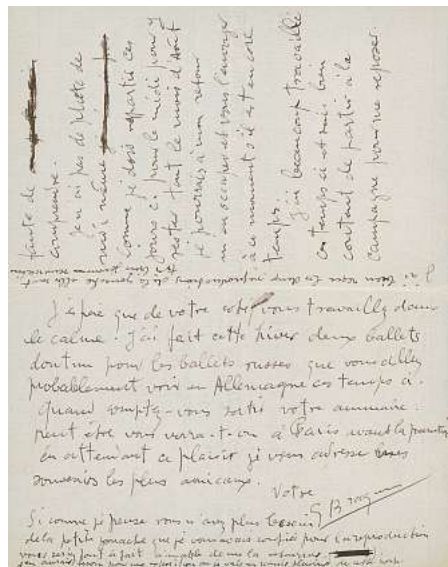 faute de
comprendre.
Je n'ai pas de photo de
moi même
comme je dois repartir ces
jours ci pour le midi pour y
rester tout le mois d'Août
je pourrais à mon retour
m'en occuper et vous l'envoyer
à ce moment s'il est encore
temps.
J'ai beaucoup travaillé
ces temps ci et suis bien
content de partir à la
campagne pour me reposer.
J'ai bien reçu les deux reproductions de la gouache elle sont
très bien
J'espère que de votre coté vous travaillez dans
le calme. J'ai fait cette hiver deux ballets
dont un pour les ballets russes que vous allez
probablement voir en Allemagne ces temps ci.
Quand comptez-vous sortir votre annuaire.
peut être vous verra-t-on à Paris avant la parution
en attendant ce plaisir je vous adresse mes
souvenirs les plus amicaux.
Votre
G Braque
Si comme je pense vous n'avez plus besoin
de la petite gouache que je vous avais confiée pour la reproduction
vous seriez tout à fait aimable de me la